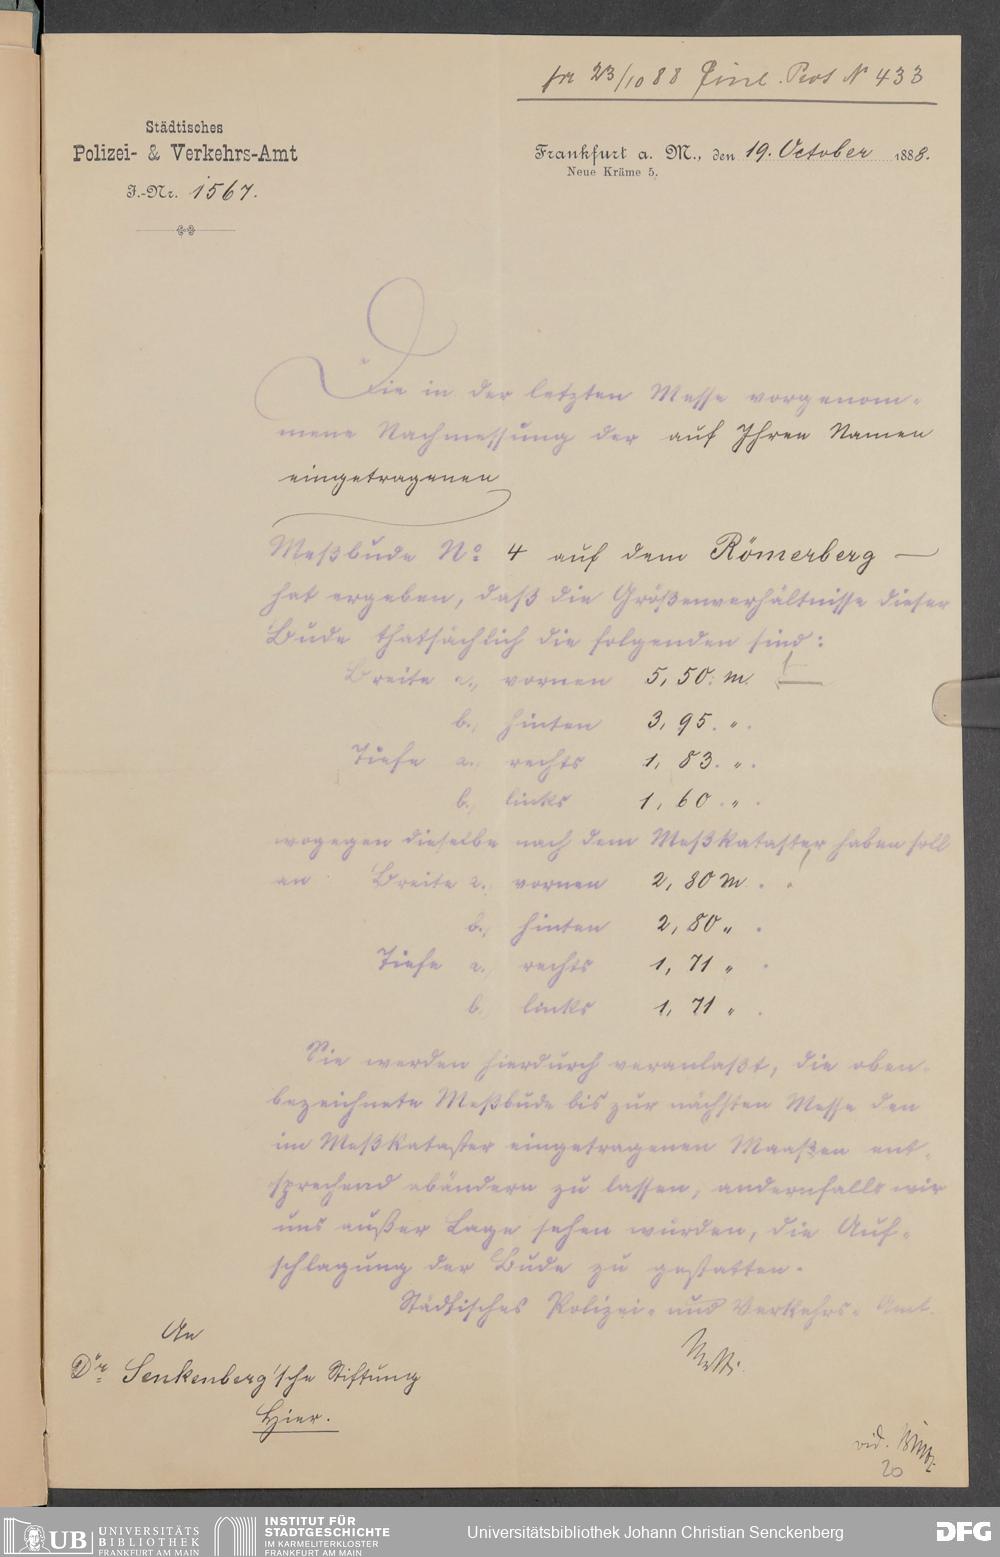 23/10 88 Prot N 433
Städtisches
Polizei- & Verkehrs-Amt
J.-Nr. 1567.
Frankfurt a. M., den 19. October 1888.
Neue Kräme 5.
Die in der letzten Messe vorgenom-
mene Nachmessung der auf Ihren Namen
eingetragenen
Meßbude No 4 auf dem Römerberg —
hat ergeben, daß die Größenverhältnisse dieser
Bude thatsächlich die folgenden sind:
Breite a., vornen 5,50. m.
b., hinten 3,95. „ .
Tiefe a., rechts 1,83. „ .
b., links 1,60. „ .
wogegen dieselbe nach dem Meßkataster haben soll
an Breite a., vornen 2,80 m .
b., hinten 2,80 „ .
Tiefe a., rechts 1,71 „ .
b., links 1,71 „ .
Sie werden hierdurch veranlaßt, die oben-
bezeichnete Meßbude bis zur nächsten Messe den
im Meßkataster eingetragenen Maaßen ent-
sprechend abändern zu lassen, andernfalls wir
uns außer Lage sehen würden, die Auf-
schlagung der Bude zu gestatten.
Städtisches Polizei- und Verkehrs-Amt.
An
Dr Senkenberg'sche Stiftung
Hier.
vid.
20
UB UNIVERSITÄTS
BIBLIOTHEK
FRANKFURT AM MAIN
INSTITUT FÜR
STADTGESCHICHTE
IM KARMELITERKLOSTER
FRANKFURT AM MAIN
Universitätsbibliothek Johann Christian Senckenberg
DFG